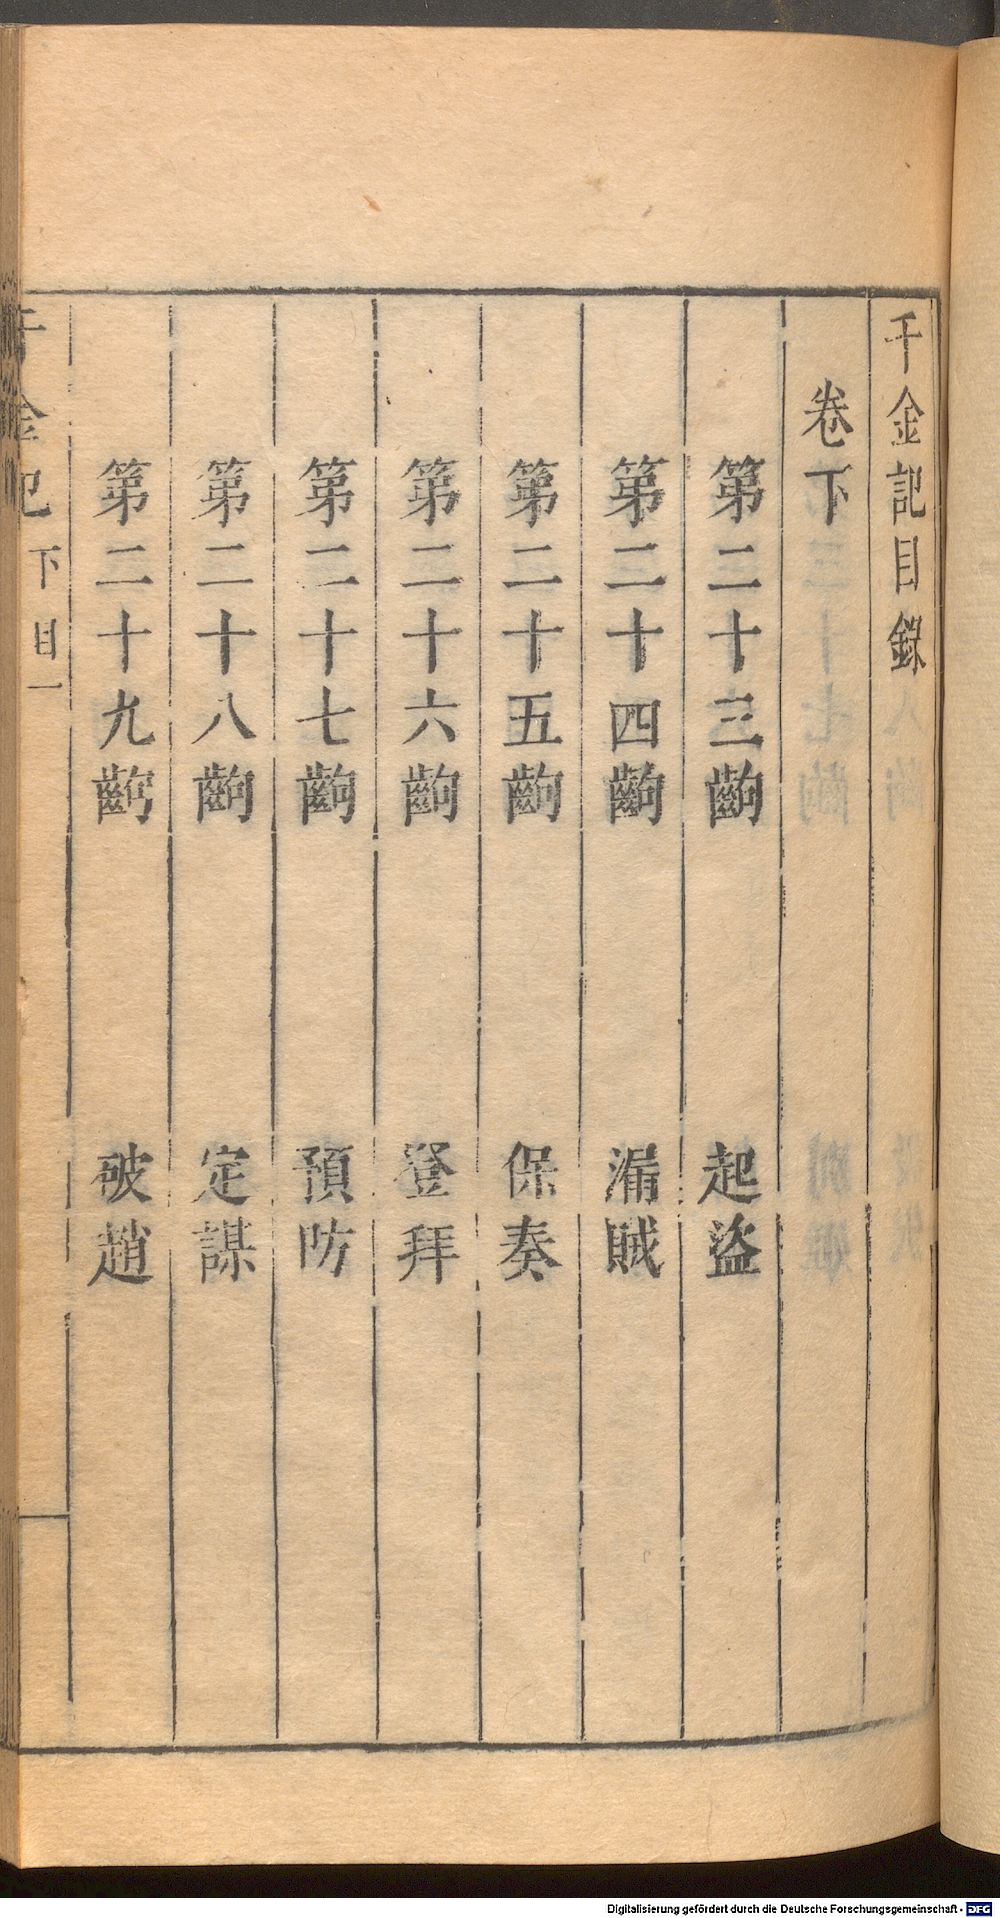 千金記目錄
卷下
第二十三齣 起盜
第二十四齣 漏賊
第二十五齣 保奏
第二十六齣 登拜
第二十七齣 預防
第二十八齣 定謀
第二十九齣 破趙
千金記 下目一
Digitalisierung gefördert durch die Deutsche Forschungsgemeinschaft - DFG